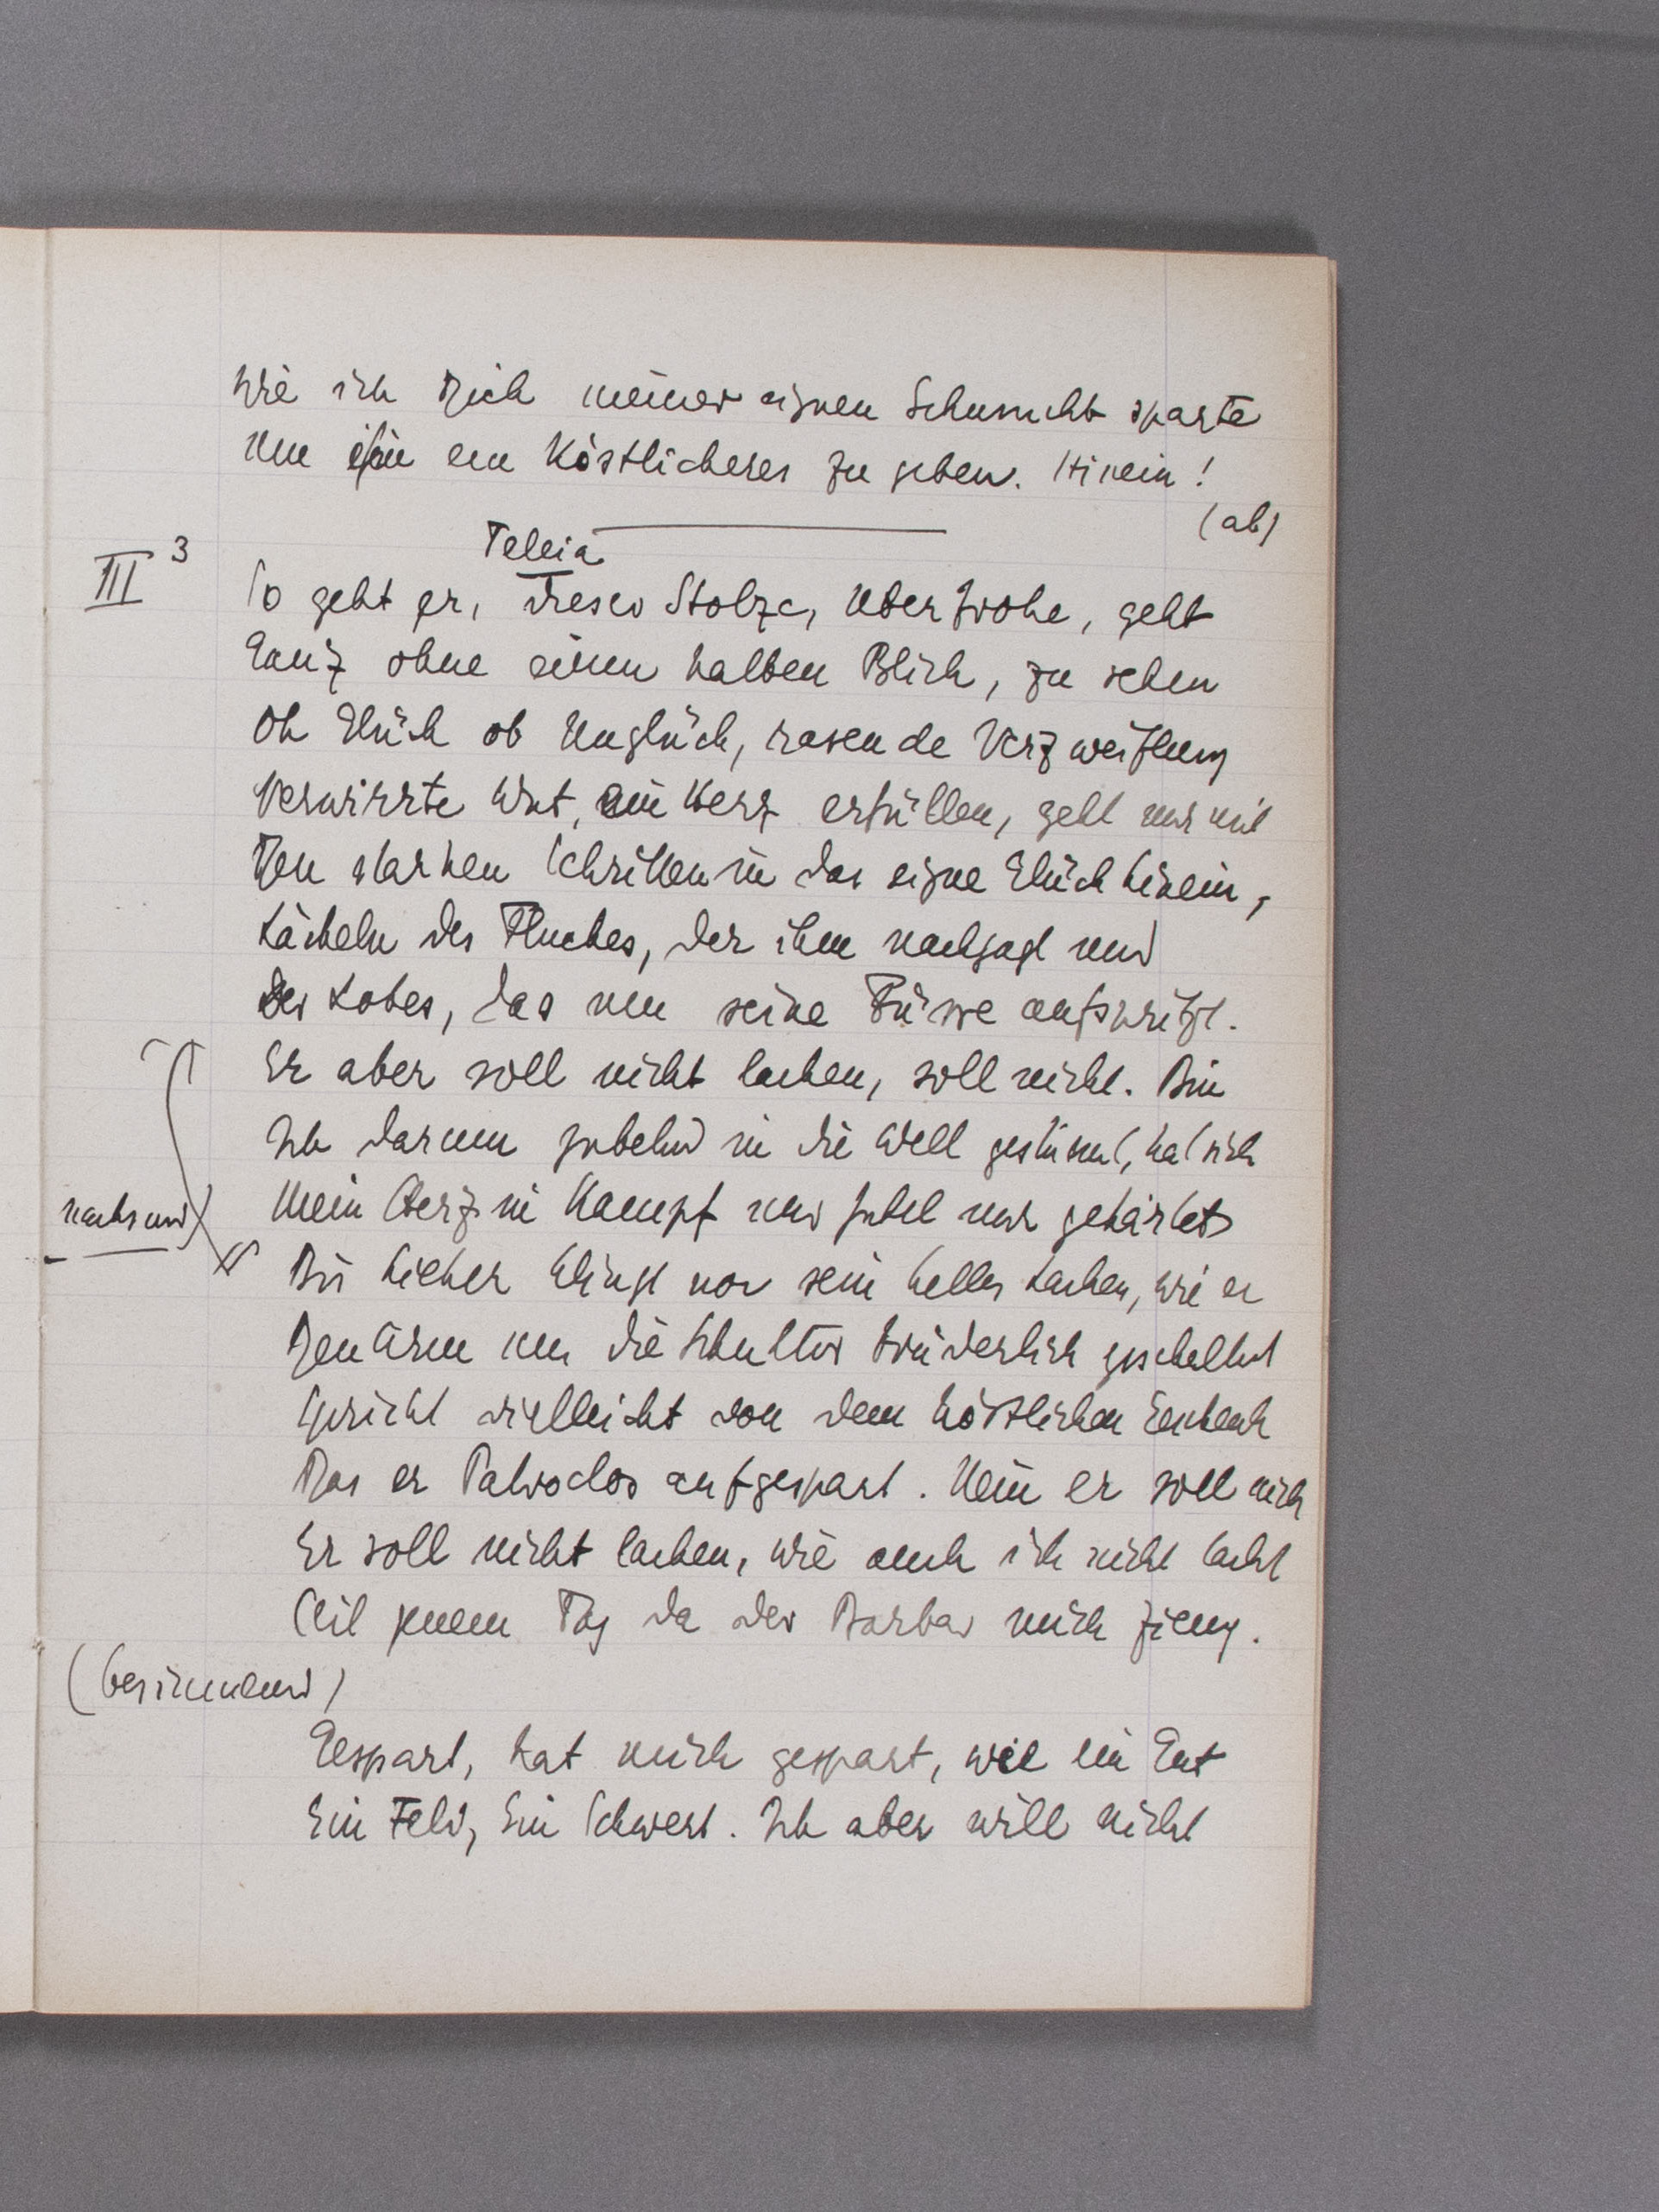 Wie ich Dich meiner eignen Sehnsucht sparte
Um ein Köstlicheres zu geben. Hinein!
(ab)
Teleia
III 3
So geht er, dieser Stolze, Uberfrohe, geht
Ganz ohne einen halben Blick, zu sehen
Ob Glück ob Unglück, rasende Verzweiflung
Verwirrte Wut, ein Herz erfüllen, geht nur mit
Den starken Schritten in das eigne Glück hinein,
Lächeln des Fluches, der ihm nachjagt und
Des Lobes, das um seine Füsse aufspritzt.
Er aber soll nicht lachen, soll nicht. Bin
Ich darum jubelnd in die Welt gestürmt, hat sich
Mein Herz in Kampf und Jubel nur gehärtet
nachsinnend)
Bis hieher klingt nor sein helles Lachen, wie er
Den Arm um die Schulter brüderlich geschultert
Spricht vielleicht von dem köstlichen Geschenk
Das er Patroclos aufgespart. Nein er soll nicht
Er soll nicht lachen, wie auch ich nicht lacht
Seit jenem Tag da der Barbar mich fieng.
(besinnend)
Gespart, hat mich gespart, wie ein Gut
Ein Feld, Ein Schwert. Ich aber will nicht